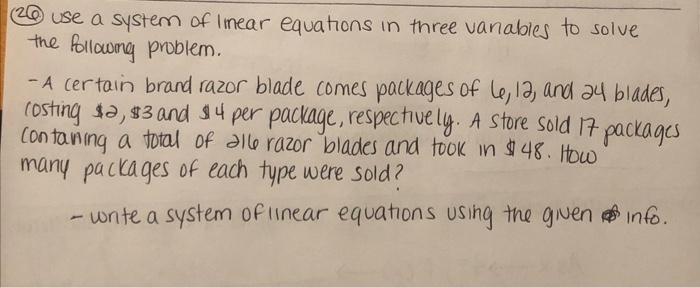 (26) use a system of linear equations in three variables to solve
the following problem.
- A certain brand razor blade comes packages of 6, 12, and 24 blades,
costing $2, $3 and $4 per package, respectively. A store sold 17 packages
contaning a total of 216 razor blades and took in $48. How
many packages of each type were sold?
- write a system of linear equations using the given info.